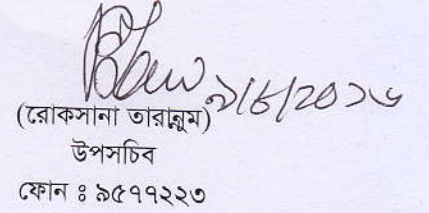 ৯/৮/20১৬
(রোকসানা তারান্নুম)
উপসচিব
ফোন ঃ ৯৫৭৭২২৩